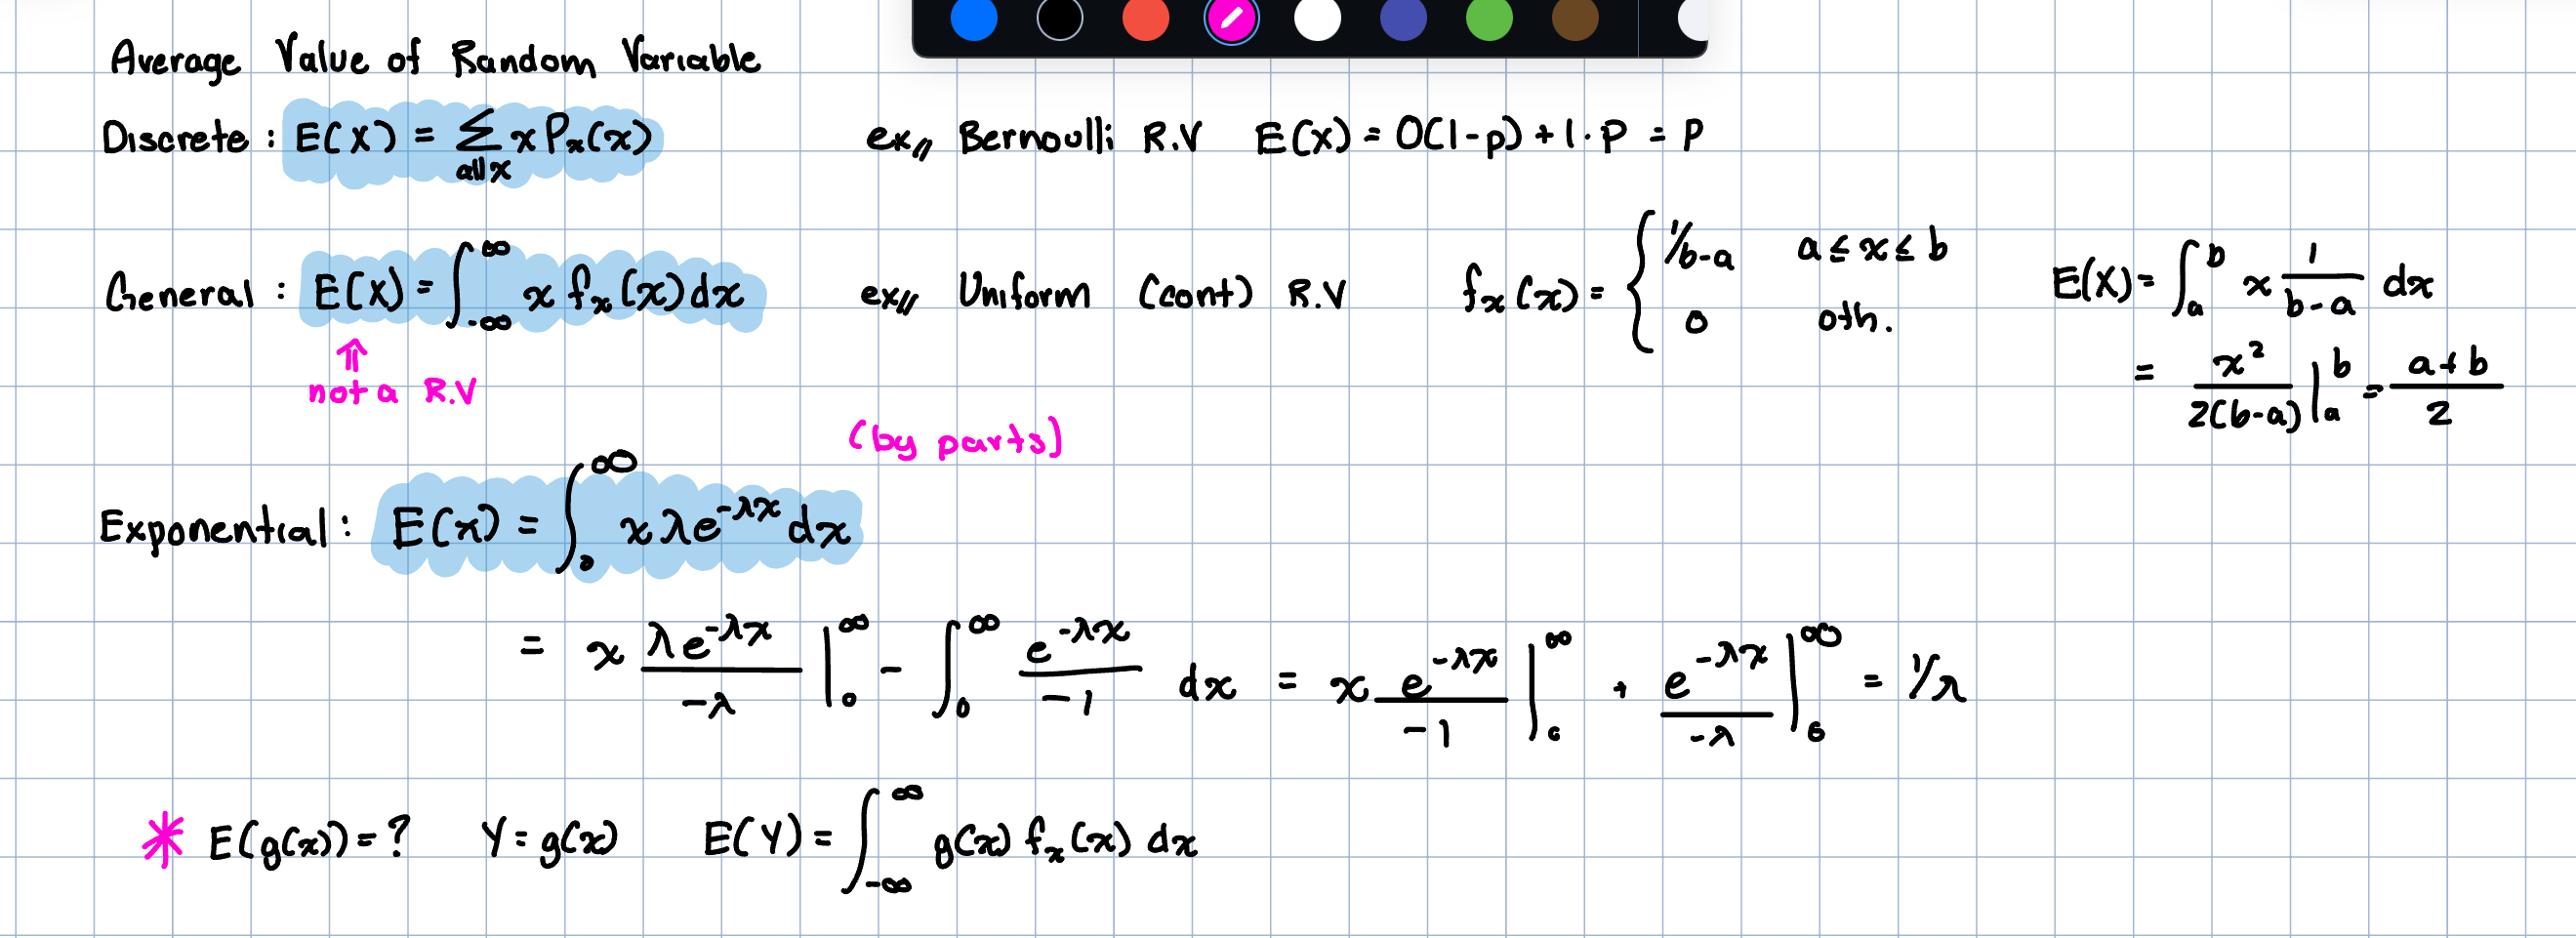 Average Value of Random Variable
Discrete : E(X) = Σ_{all x} x P_x(x)    ex// Bernoulli R.V    E(X) = 0(1-p) + 1·P = P
General : E(X) = ∫_{-∞}^{∞} x f_x(x) dx    ex// Uniform (cont) R.V    f_x(x) = { 1/b-a  a ≤ x ≤ b ; 0  oth.    E(X) = ∫_a^b x 1/(b-a) dx
= x²/2(b-a) |_a^b = a+b/2
⇑
not a R.V
(by parts)
Exponential : E(x) = ∫_0^∞ x λe^{-λx} dx
= x λe^{-λx}/-λ |_0^∞ - ∫_0^∞ e^{-λx}/-1 dx = x e^{-λx}/-1 |_0^∞ + e^{-λx}/-λ |_0^∞ = 1/λ
* E(g(x)) = ?    Y = g(x)    E(Y) = ∫_{-∞}^{∞} g(x) f_x(x) dx